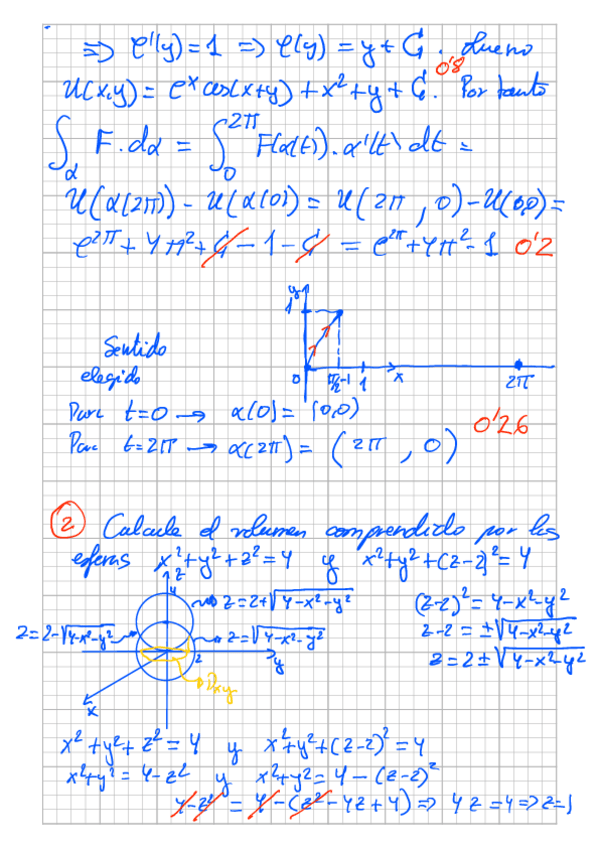 ⇒ φ'(y) = 1 ⇒ φ(y) = y + C₁. Bueno
0'8
U(x,y) = eˣ cos(x+y) + x² + y + C₁. Por tanto
∫_α F·dα = ∫₀^2π F(α(t))·α'(t) dt =
U(α(2π)) - U(α(0)) = U(2π, 0) - U(0,0) =
e^2π + 4π² + C₁ - 1 - C₁ = e^2π + 4π² - 1 0'2
y
1
Sentido
elegido
0 π/2-1 1 x 2π
Para t=0 → α(0) = (0,0)
0'26
Para t=2π → α(2π) = (2π, 0)
② Calcula el volumen comprendido por las
esferas x²+y²+z²=4 y x²+y²+(z-2)²=4
z
4
z=2+√4-x²-y² (z-2)²=4-x²-y²
z=2-√4-x²-y² z=√4-x²-y² z-2=±√4-x²-y²
2 y z=2±√4-x²-y²
Dxy
x
x²+y²+z²=4 y x²+y²+(z-2)²=4
x²+y²=4-z² y x²+y²=4-(z-2)²
4-z² = 4-(z²-4z+4) ⇒ 4z=4 ⇒ z=1